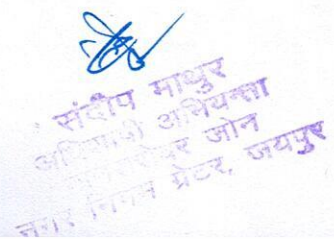 संदीप माथुर
अधिशाषी अभियन्ता
जोन
नगर निगम ग्रेटर, जयपुर